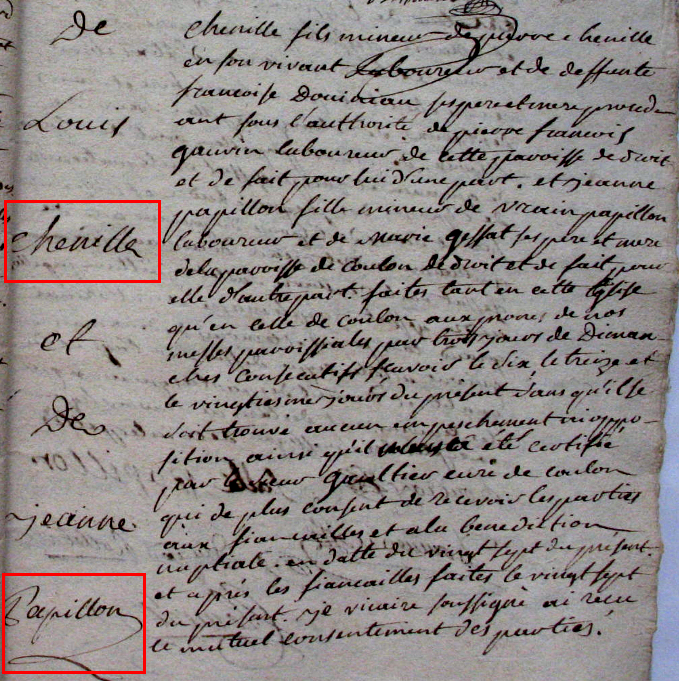 De
Louis
chenille
et
De
jeanne
Papillon
chenille fils mineur de pierre chenille
en son vivant laboureur et de deffunte
francoise Doussian ses pere et mere procede
ant sous l'authorité de pierre francois
gauvin laboureur de cette paroisse de droit
et de fait pour lui d'une part. et jeanne
papillon fille mineur de vrain papillon
laboureur et de Marie gessat ses pere et mere
de la paroisse de coulon de droit et de fait pour
elle d'autre part. faites tant en cette Eglise
qu'en celle de coulon aux prones de nos
messes paroissiales par trois jours de Diman
ches consecutifs scavoir le six, le treize et
le vingtiesme jours du present sans qu'il se
soit trouvé aucun empeschement ni oppo-
sition ainsi qu'il été certifié
par le sieur gaultier curé de coulon
qui de plus consent de recevoir les parties
aux fiancailles et a la benediction
nuptiale. en datte du vingt sept du présent.
et après les fiancailles faites le vingt sept
du présent. je vicaire soussigné ai recu
le mutuel consentement des parties.